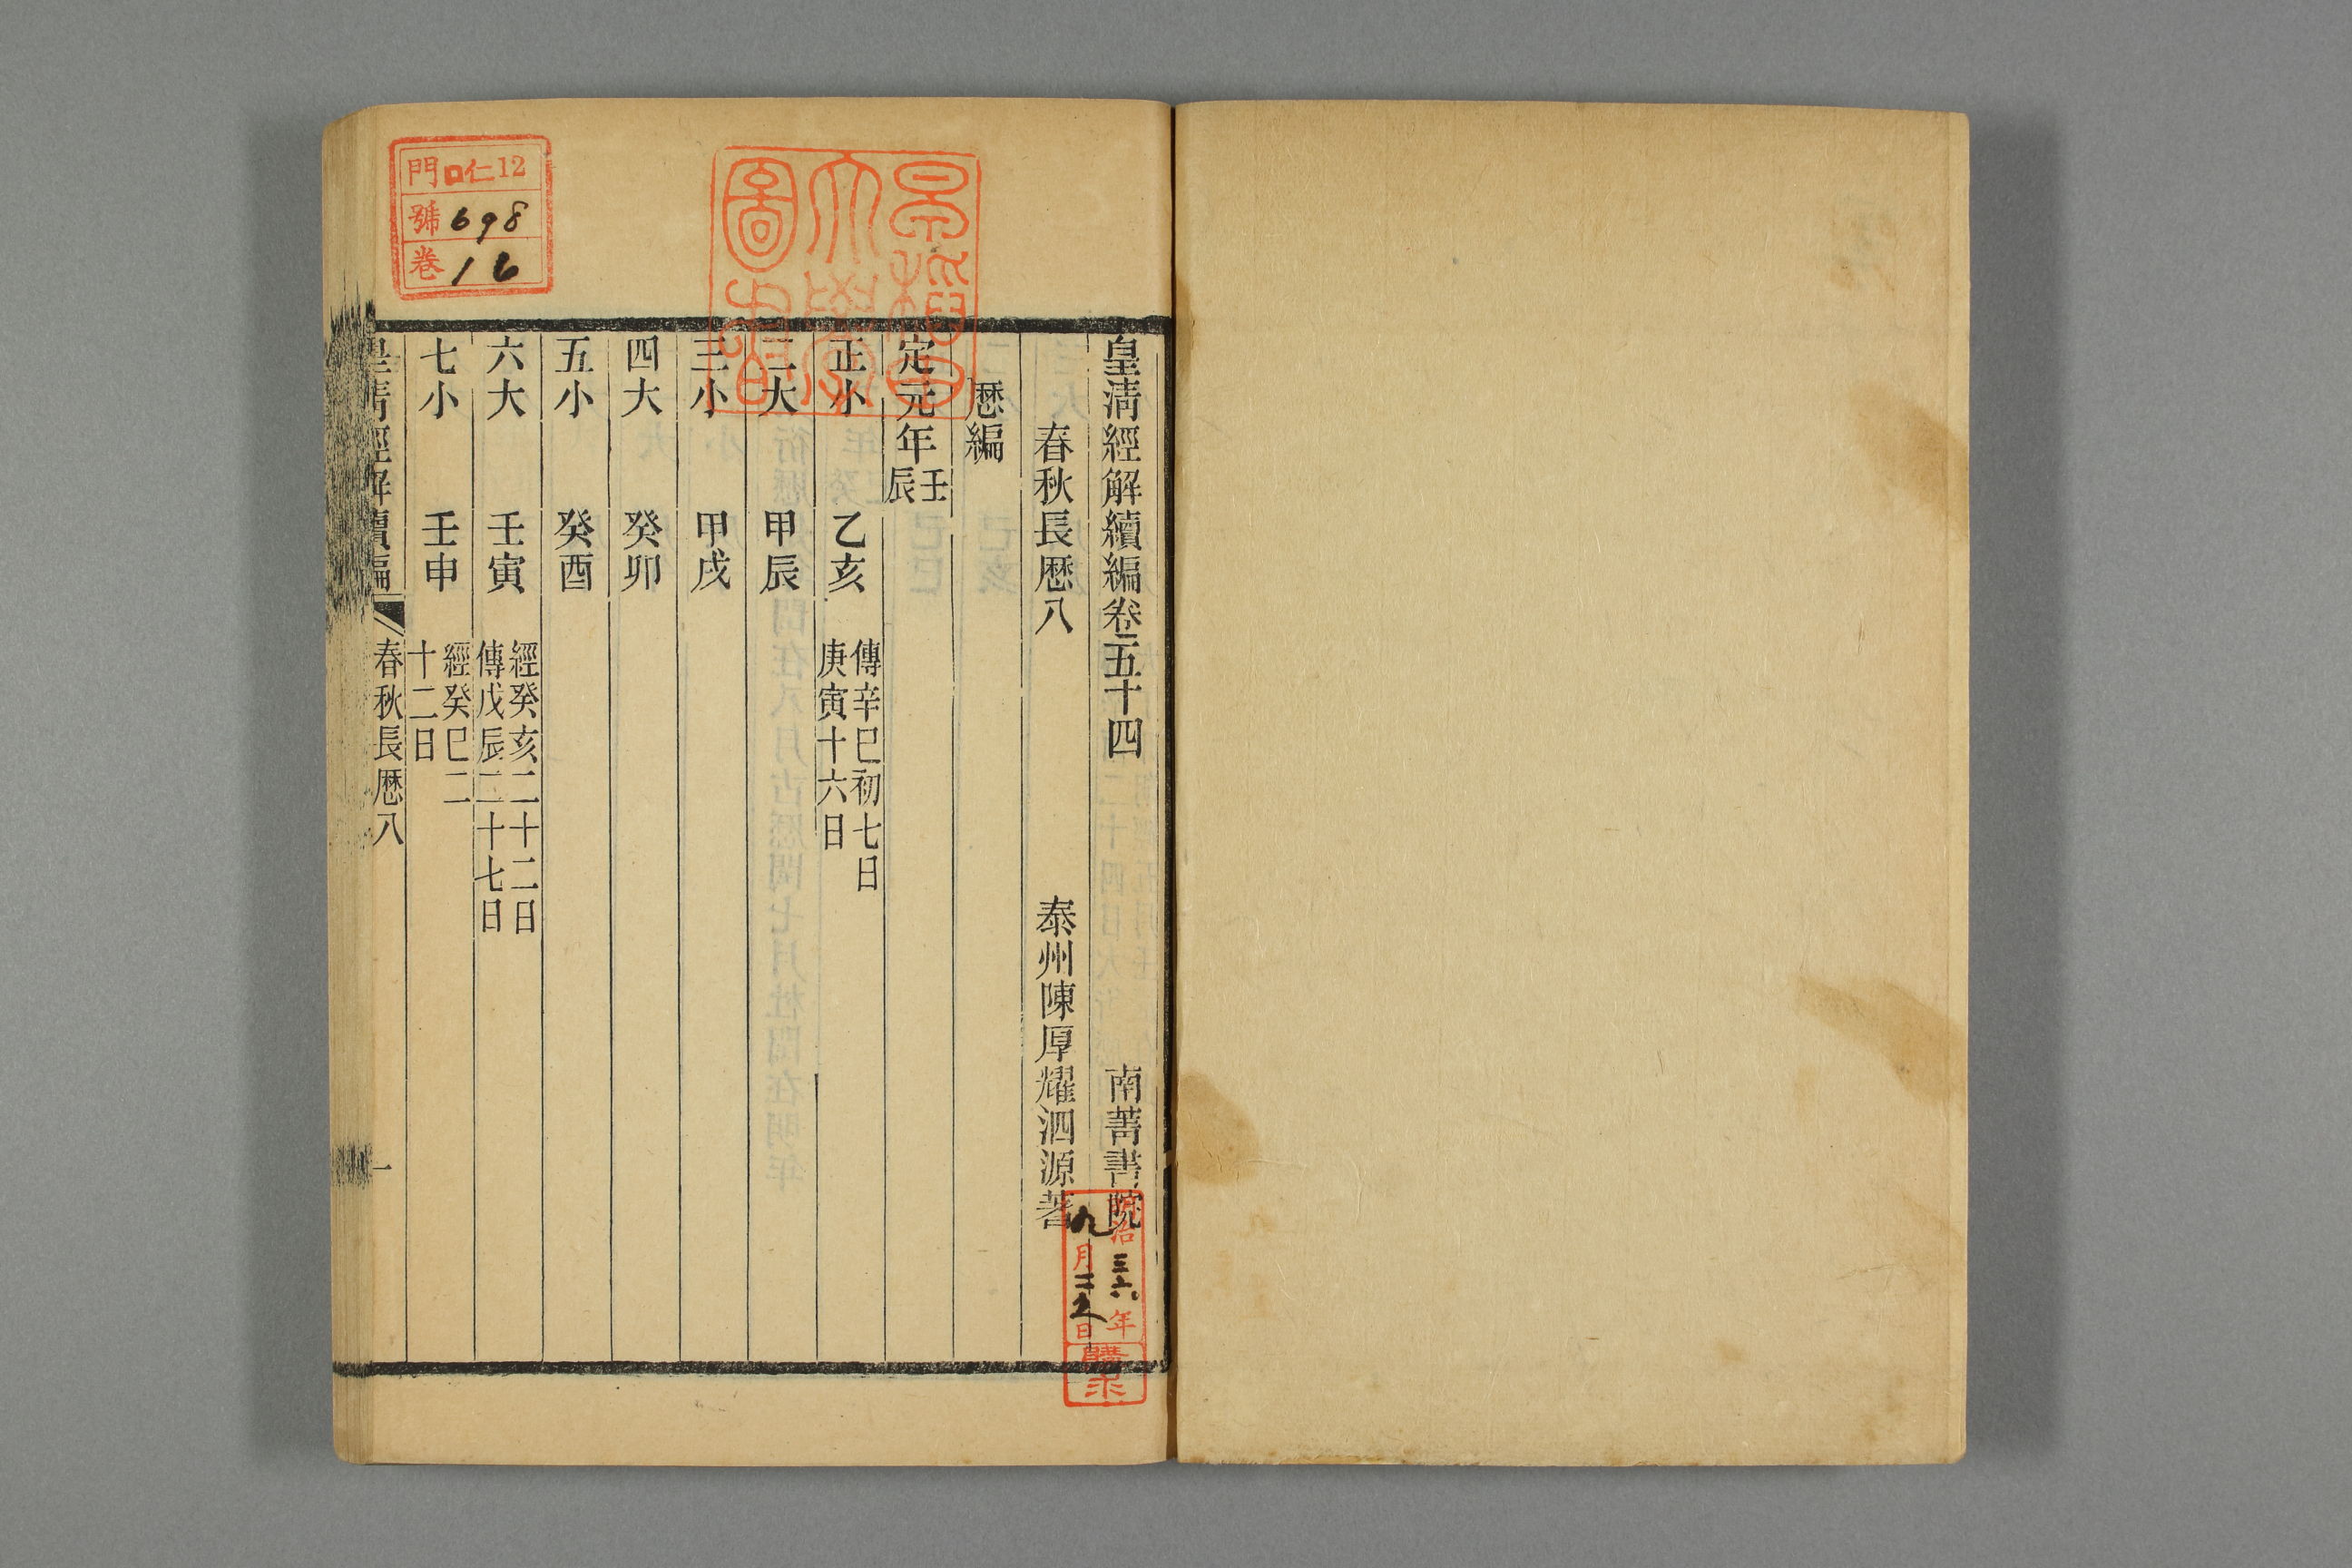 皇淸經解續編卷五十四
南菁書院
春秋長厯八
泰州陳厚耀泗源著
厯編
定元年壬辰
正小 乙亥 傳辛巳初七日
庚寅十六日
二大 甲辰
三小 甲戌
四大 癸卯
五小 癸酉
六大 壬寅 經癸亥二十二日
傳戊辰二十七日
七小 壬申 經癸巳二
十二日
皇淸經解續編
春秋長厯八
一
門口仁12
號698
卷16
早稻田
大學
圖書
明治三六年
九月二五日
購求